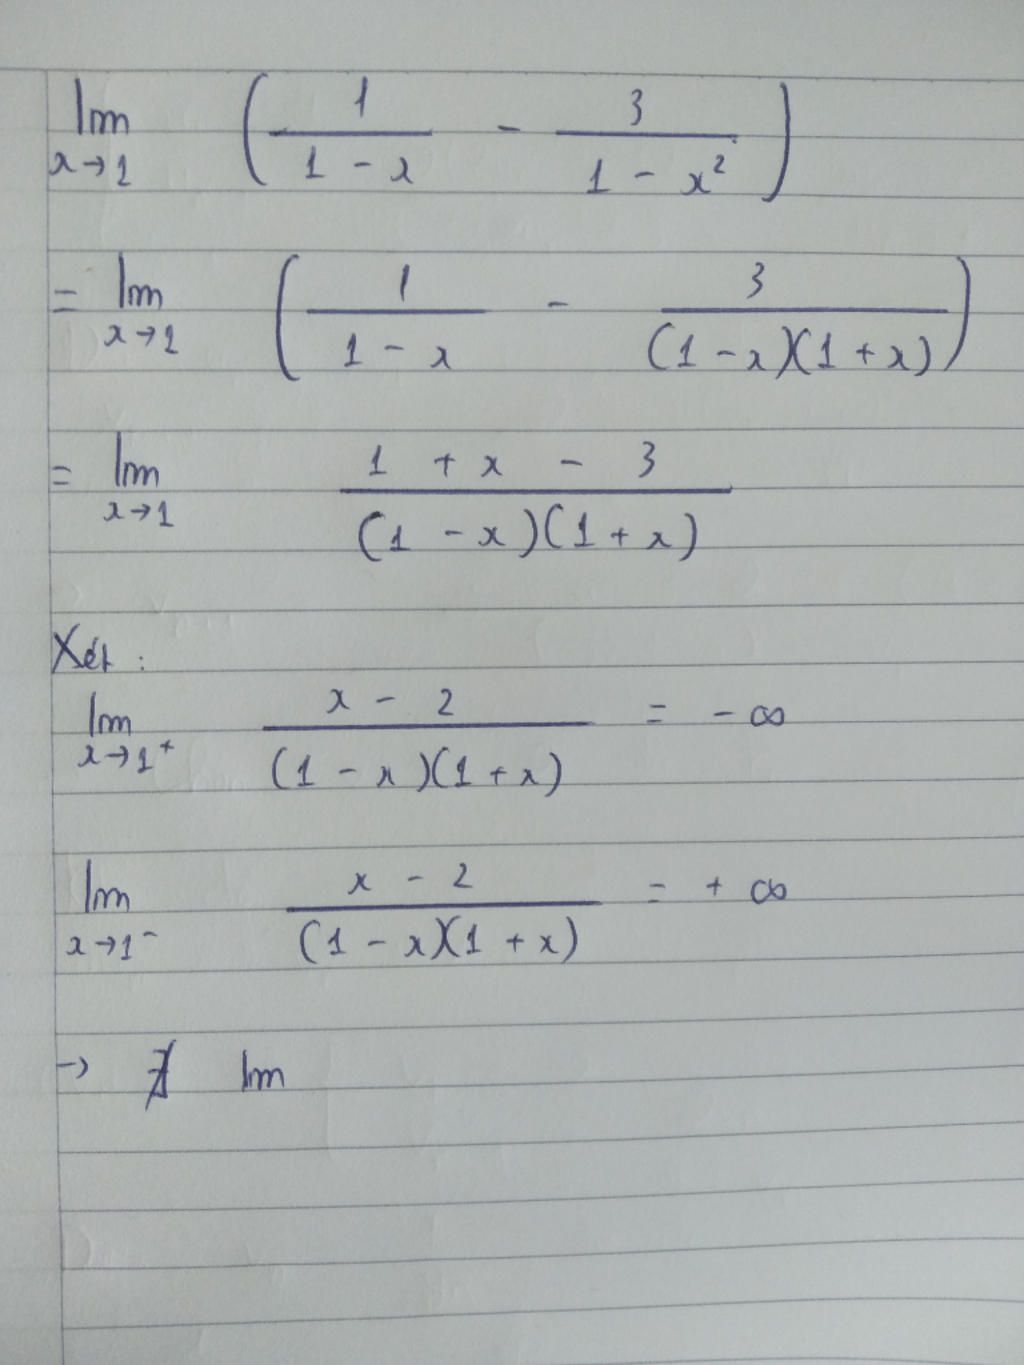 lim x→1 ( 1/(1 - x) - 3/(1 - x²) )
= lim x→1 ( 1/(1 - x) - 3/((1 - x)(1 + x)) )
= lim x→1 (1 + x - 3)/((1 - x)(1 + x))
Xét :
lim x→1⁺ (x - 2)/((1 - x)(1 + x)) = - ∞
lim x→1⁻ (x - 2)/((1 - x)(1 + x)) = + ∞
→ ∄ lim